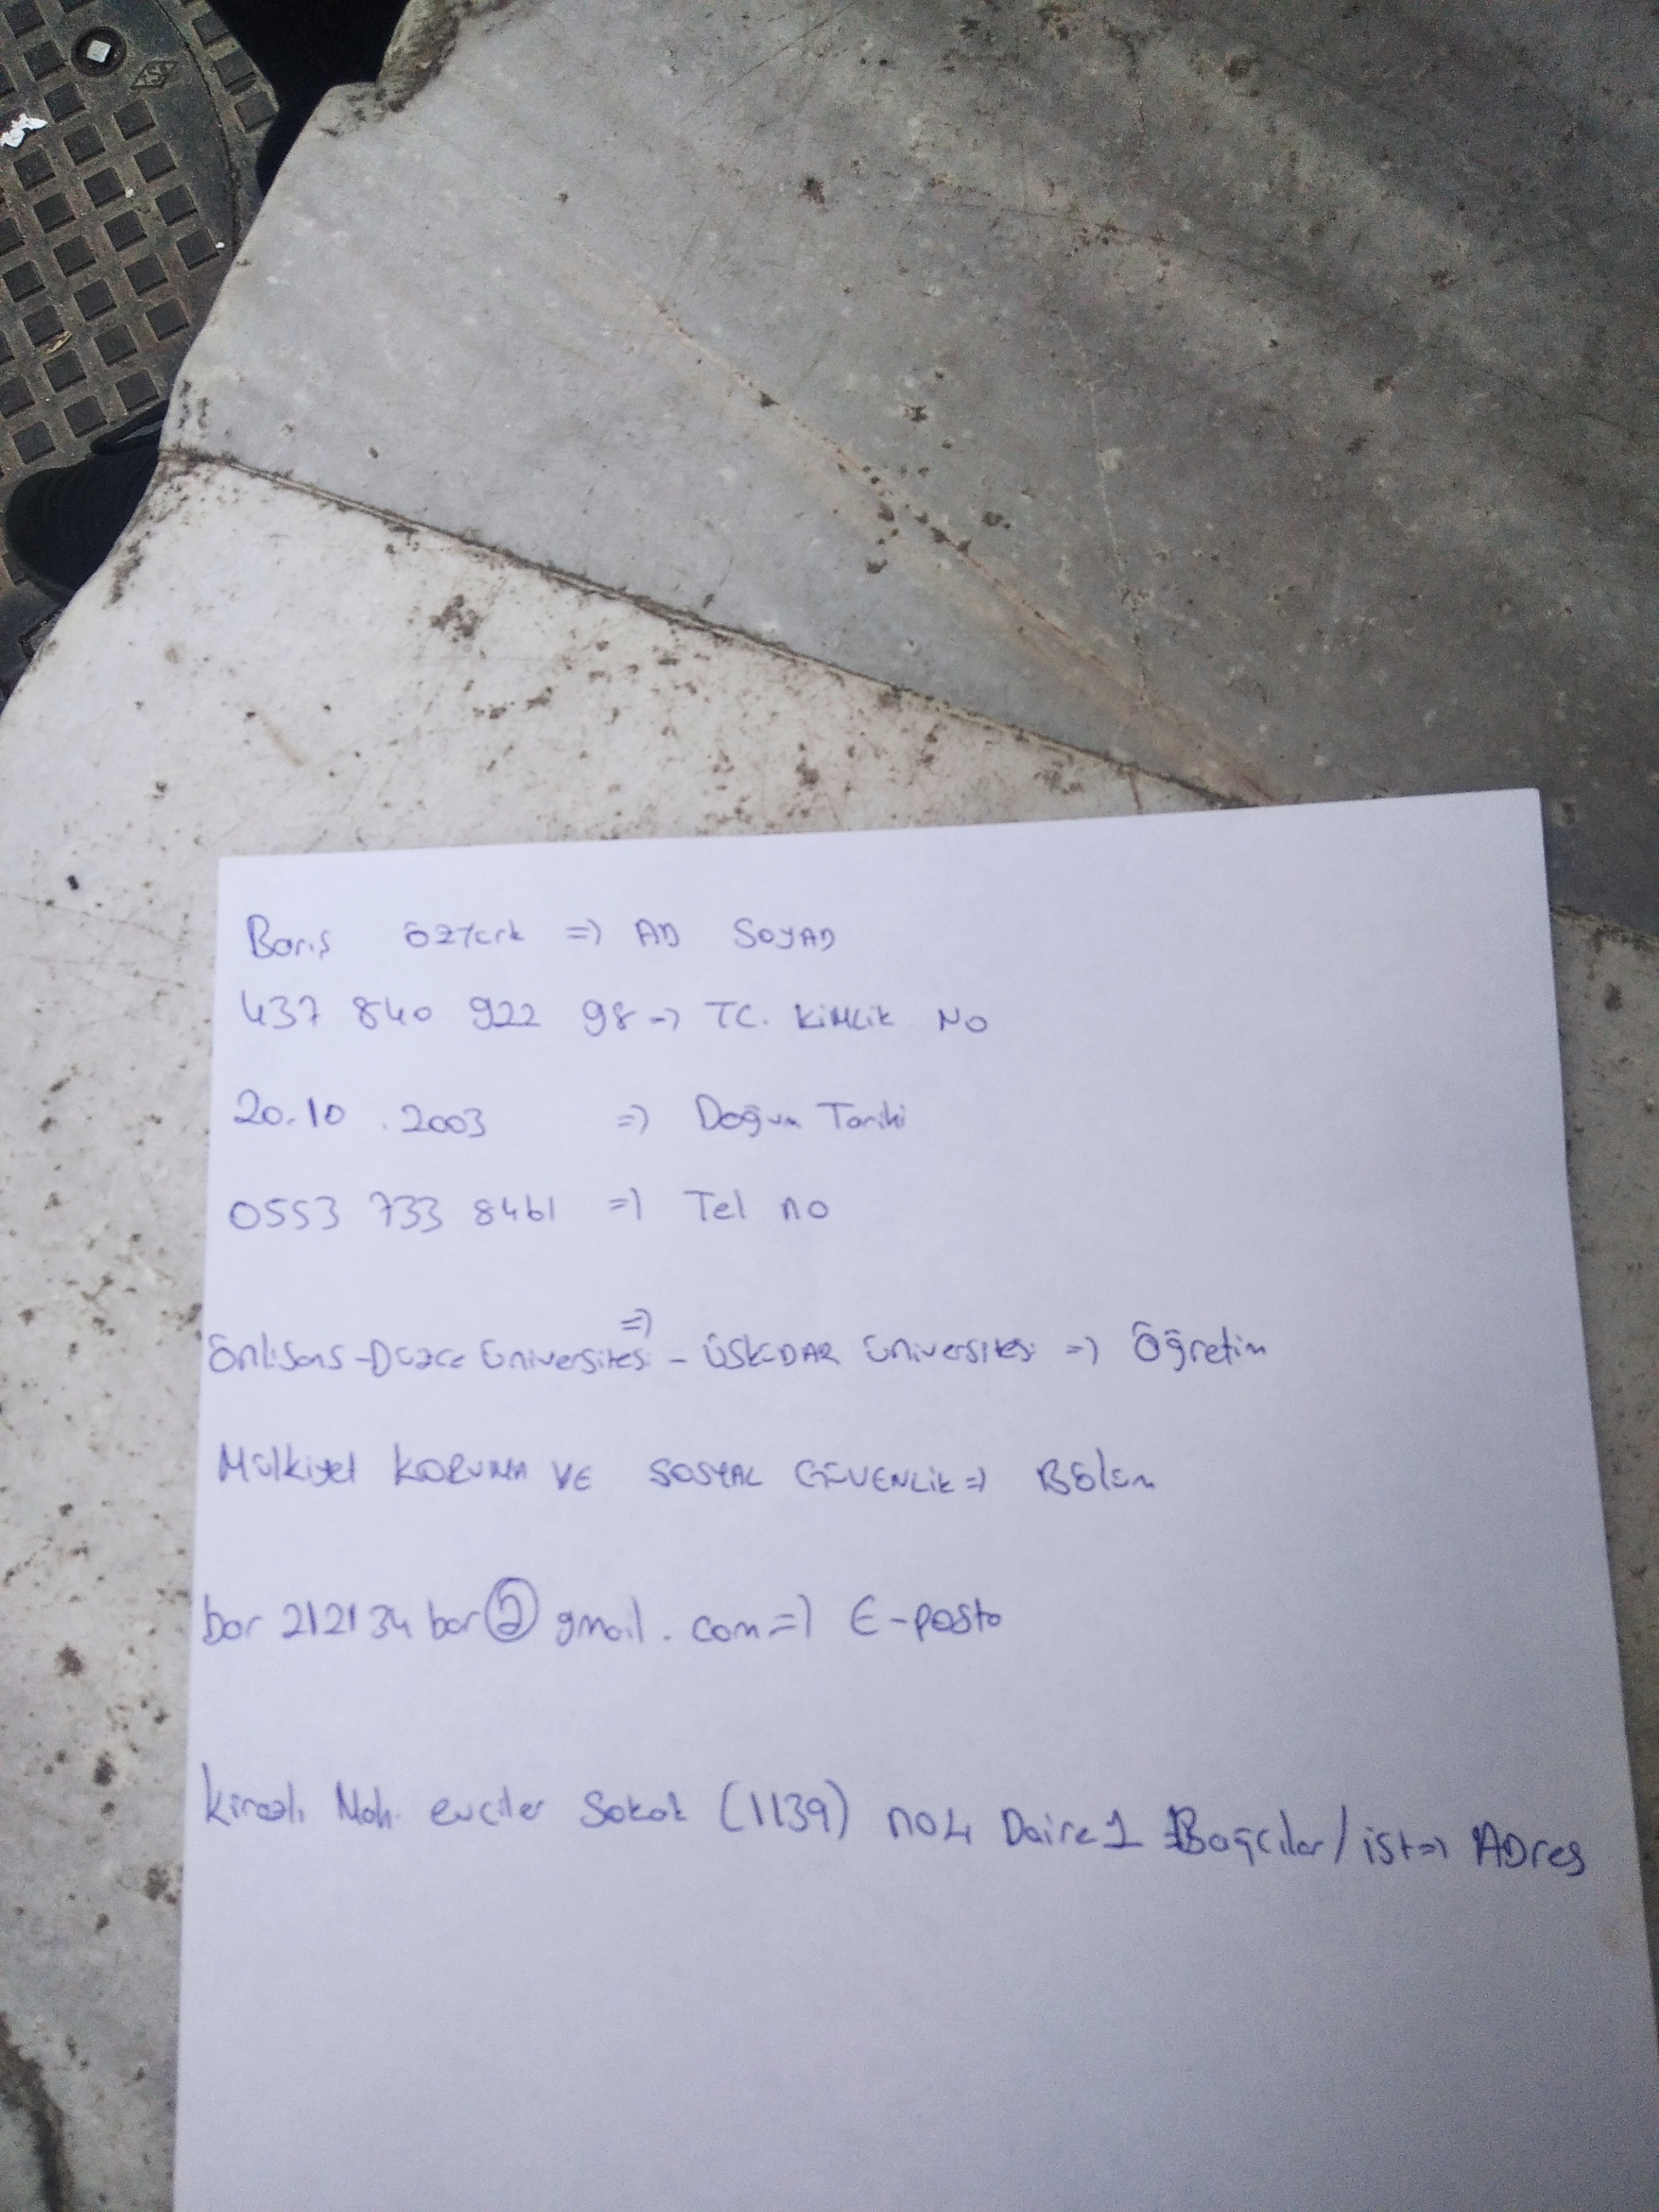 TSE
Barış Öztürk => AD SOYAD
437 840 922 98 => TC. KİMLİK NO
20.10.2003 => Doğum Tarihi
0553 733 8461 => Tel no
=>
Önlisans - Düzce Üniversitesi - ÜSKÜDAR Üniversitesi => Öğretim
Mülkiyet KORUMA VE SOSYAL GÜVENLİK => Bölüm
bar 212134 bar@gmail.com => E-posta
Kirazlı Mah. evciler Sokak (1139) no 4 Daire 1 Bağcılar/ist => ADres